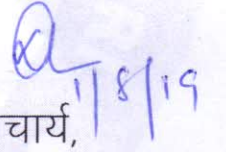 1/8/19
चार्य,